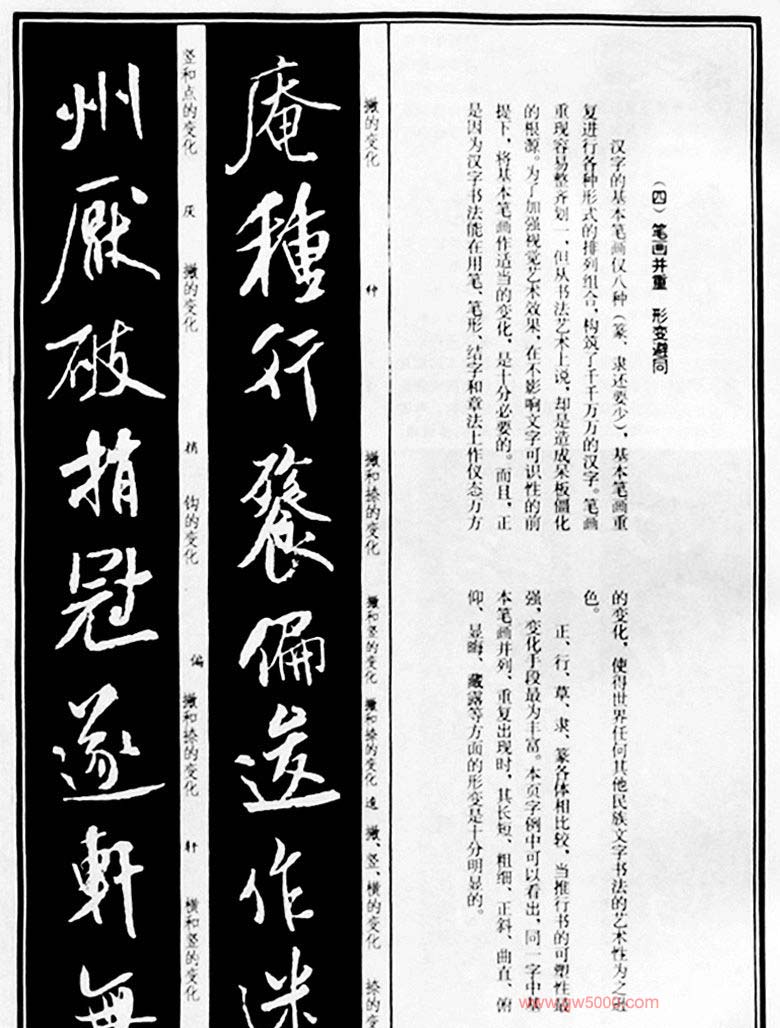 （四） 笔画并重 形变避同
汉字的基本笔画仅八种（篆、隶还要少），基本笔画重
复进行各种形式的排列组合，构筑了千千万万的汉字。笔画
重现容易整齐划一，但从书法艺术上说，却是造成呆板僵化
的根源。为了加强视觉艺术效果，在不影响文字可识性的前
提下，将基本笔画作适当的变化，是十分必要的。而且，正
是因为汉字书法能在用笔、笔形、结字和章法上作仪态万方
的变化，使得世界任何其他民族文字书法的艺术性为之逊
色。
正、行、草、隶、篆各体相比较，当推行书的可塑性最
强，变化手段最为丰富。本页字例中可以看出，同一字中基
本笔画并列、重复出现时，其长短、粗细、正斜、曲直、俯
仰、显晦、藏露等方面的形变是十分明显的。
撇的变化 种 撇和捺的变化 撇和竖的变化 撇和捺的变化 撇、竖、横的变化 捺的变
庵種行餐偏逡作迷
竖和点的变化 厌 撇的变化 捎 钩的变化 偏 撇和捺的变化 轩 横和竖的变化
州厭破捎冠遂軒無
www.gw5000.com